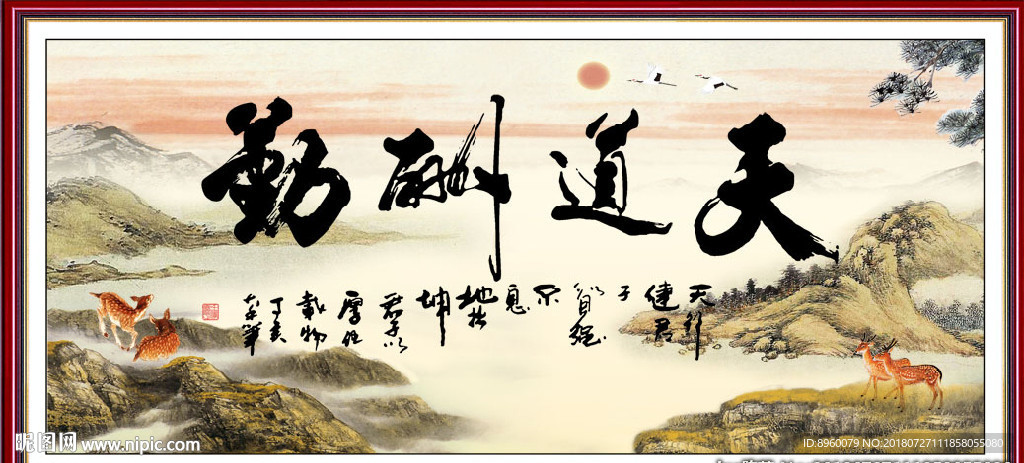 天道酬勤
天行
健君
子
以自强
不
息
地势
坤
君子以
厚德
載物
丁亥
昵图网 www.nipic.com
ID:8960079 NO:20180727111858055080